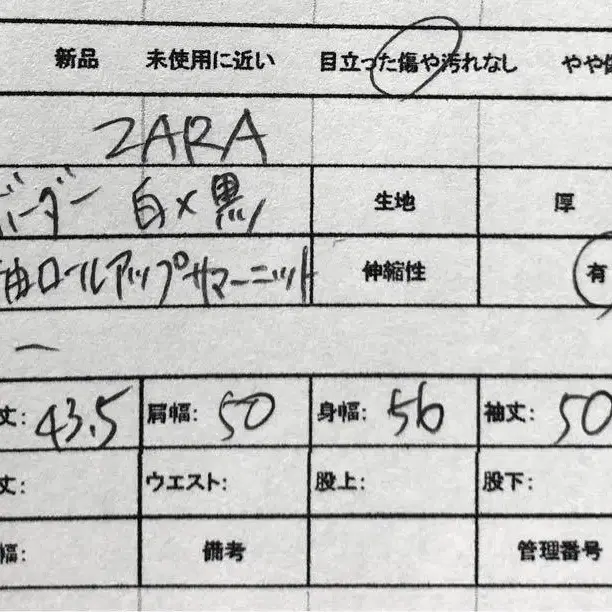 新品 未使用に近い 目立った傷や汚れなし やや傷
ZARA
ボーダー 白×黒 生地 厚
袖ロールアップサマーニット 伸縮性 有
丈: 43.5 肩幅: 50 身幅: 56 袖丈: 50
丈: ウエスト: 股上: 股下:
幅: 備考 管理番号